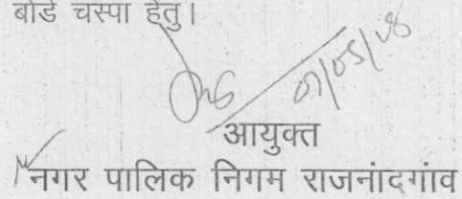 बोर्ड चस्पा हेतु।
आयुक्त
नगर पालिक निगम राजनांदगांव